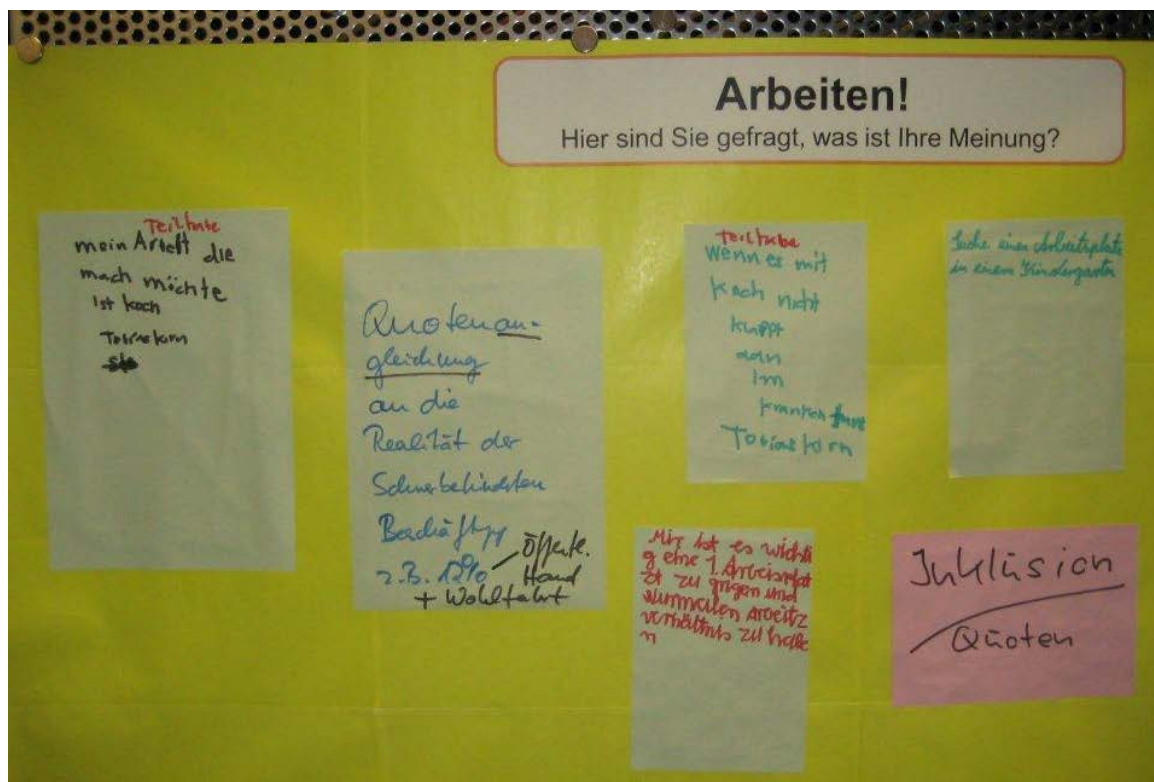 Arbeiten!
Hier sind Sie gefragt, was ist Ihre Meinung?
Teilhabe
mein Arteit die
mach möchte
Ist koch
Quotenan-
gleichung
an die
Realität der
Schwerbehinderten
z.B. 12% Öffentl.
Hand
+ Wohlfahrt
Teilhabe
wenn es mit
koch nicht
klappt
dan
im
kranken
Tobias korn
Suche einen Arbeitsplatz
in einem Kindergarten
Mir ist es wichti
g eine 1. Arbeitsplat
zt zu grigen und
verhältnis zu habe
n
Inklusion
Quoten